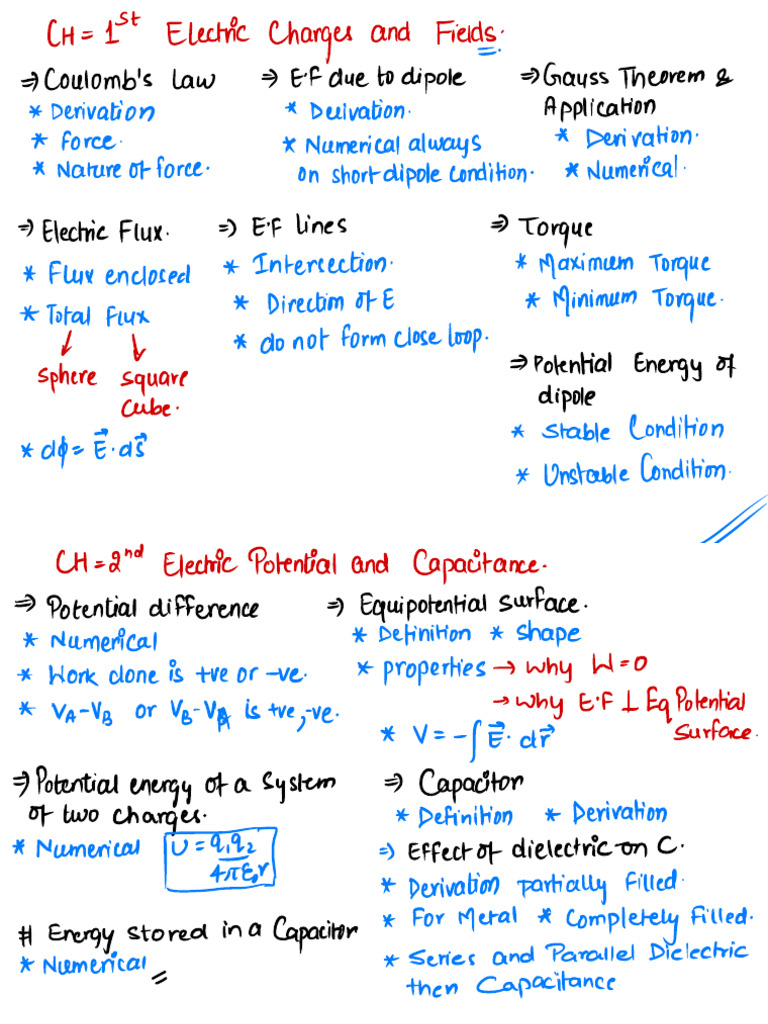 CH = 1st Electric Charges and Fields.
⇒ Coulomb's Law
* Derivation
* force.
* Nature of force.
⇒ E.F due to dipole
* Derivation.
* Numerical always
on short dipole condition.
⇒ Gauss Theorem &
Application
* Derivation.
* Numerical.
⇒ Electric Flux.
* Flux enclosed
* Total flux
↓ ↓
sphere square
cube.
* dϕ = E⃗.ds⃗
⇒ E.F lines
* Intersection.
* Direction of E
* do not form close loop.
⇒ Torque
* Maximum Torque
* Minimum Torque.
⇒ Potential Energy of
dipole
* Stable Condition
* Unstable Condition.
CH = 2nd Electric Potential and Capacitance.
⇒ Potential difference
* Numerical
* Work done is +ve or -ve.
* VA-VB or VB-VA is +ve,-ve.
⇒ Equipotential surface.
* Definition * shape
* properties → why W=0
→ why E.F ⊥ Eq Potential
surface.
* V = -∫E⃗.dr⃗
⇒ Potential energy of a system
of two charges.
* Numerical U = q1q2/4πε0r
# Energy stored in a Capacitor
* Numerical
⇒ Capacitor
* Definition * Derivation
⇒ Effect of dielectric on C.
* Derivation partially filled.
* For Metal * Completely filled.
* Series and Parallel Dielectric
then Capacitance